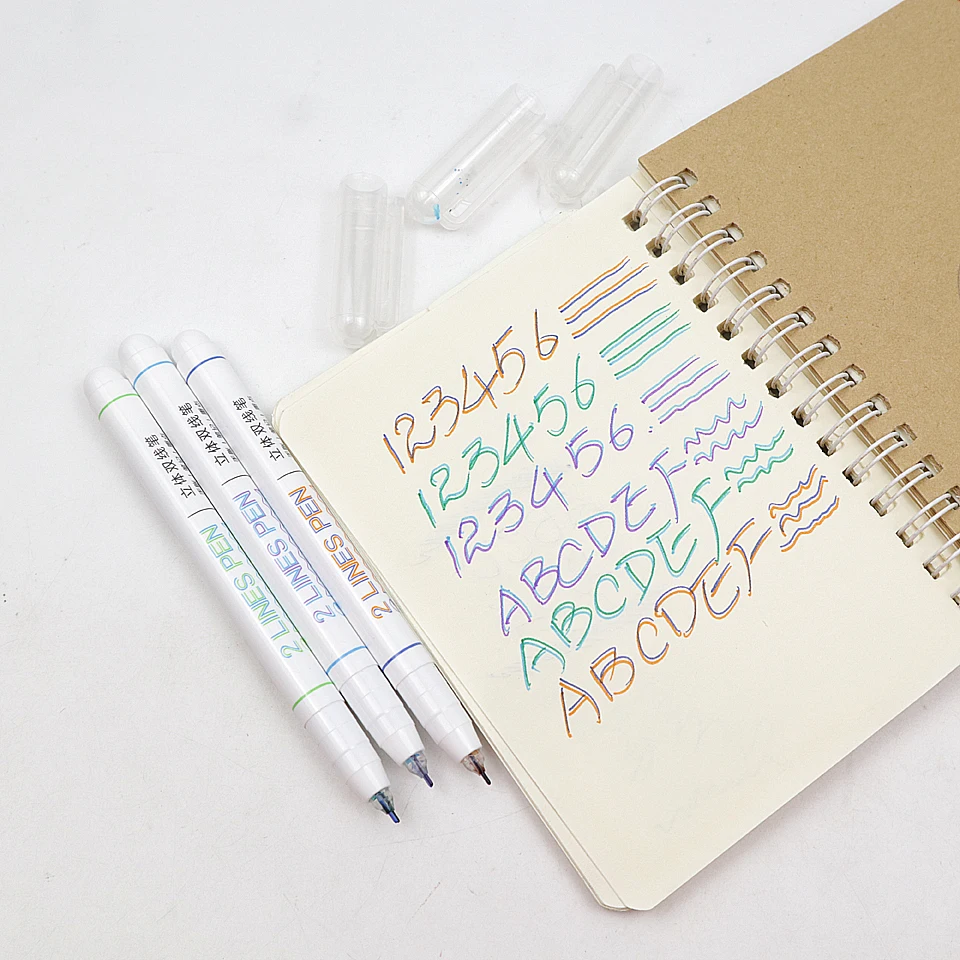 立体双线笔
2 LINES PEN
立体双线笔
2 LINES PEN
立体双线笔
2 LINES PEN
123456
123456
123456
ABCDEF
ABCDEF
ABCDEF